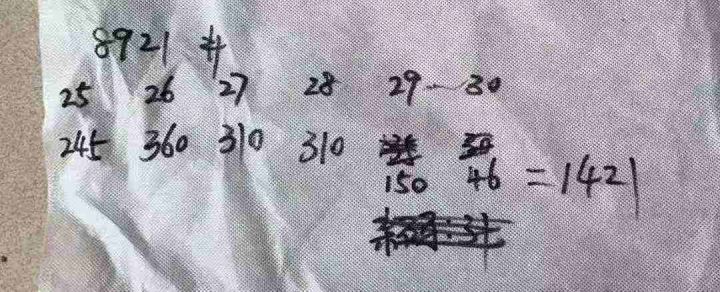 8921 #
25 26 27 28 29 30
245 360 310 310
150 46 = 1421